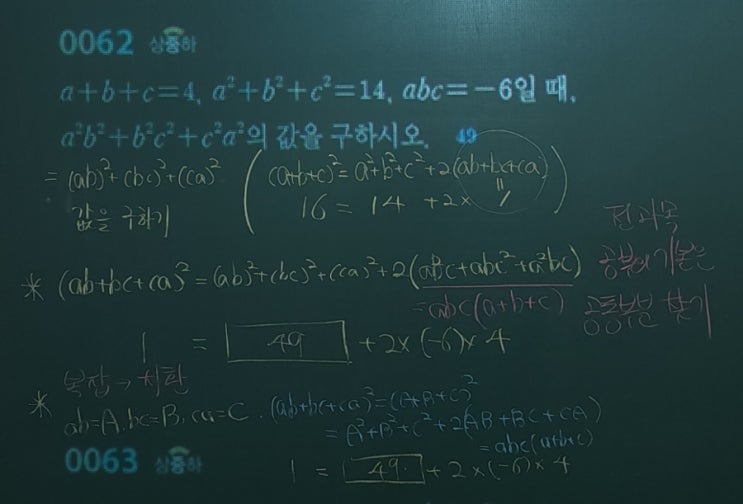 0062 상중하
a+b+c=4, a²+b²+c²=14, abc=-6일 때,
a²b²+b²c²+c²a²의 값을 구하시오. 49
= (ab)²+(bc)²+(ca)²
값을 구하기
(a+b+c)²=a²+b²+c²+2(ab+bc+ca)
16 = 14 +2×
1
전과목
공부의 기본은
공통부분 찾기
* (ab+bc+ca)²=(ab)²+(bc)²+(ca)²+2(ab²c+abc²+a²bc)
=abc(a+b+c)
1 = 49 +2×(-6)×4
복잡→치환
* ab=A, bc=B, ca=C. (ab+bc+ca)²=(A+B+C)²
=A²+B²+C²+2(AB+BC+CA)
=abc(a+b+c)
0063 상중하
1 = 49. +2×(-6)×4